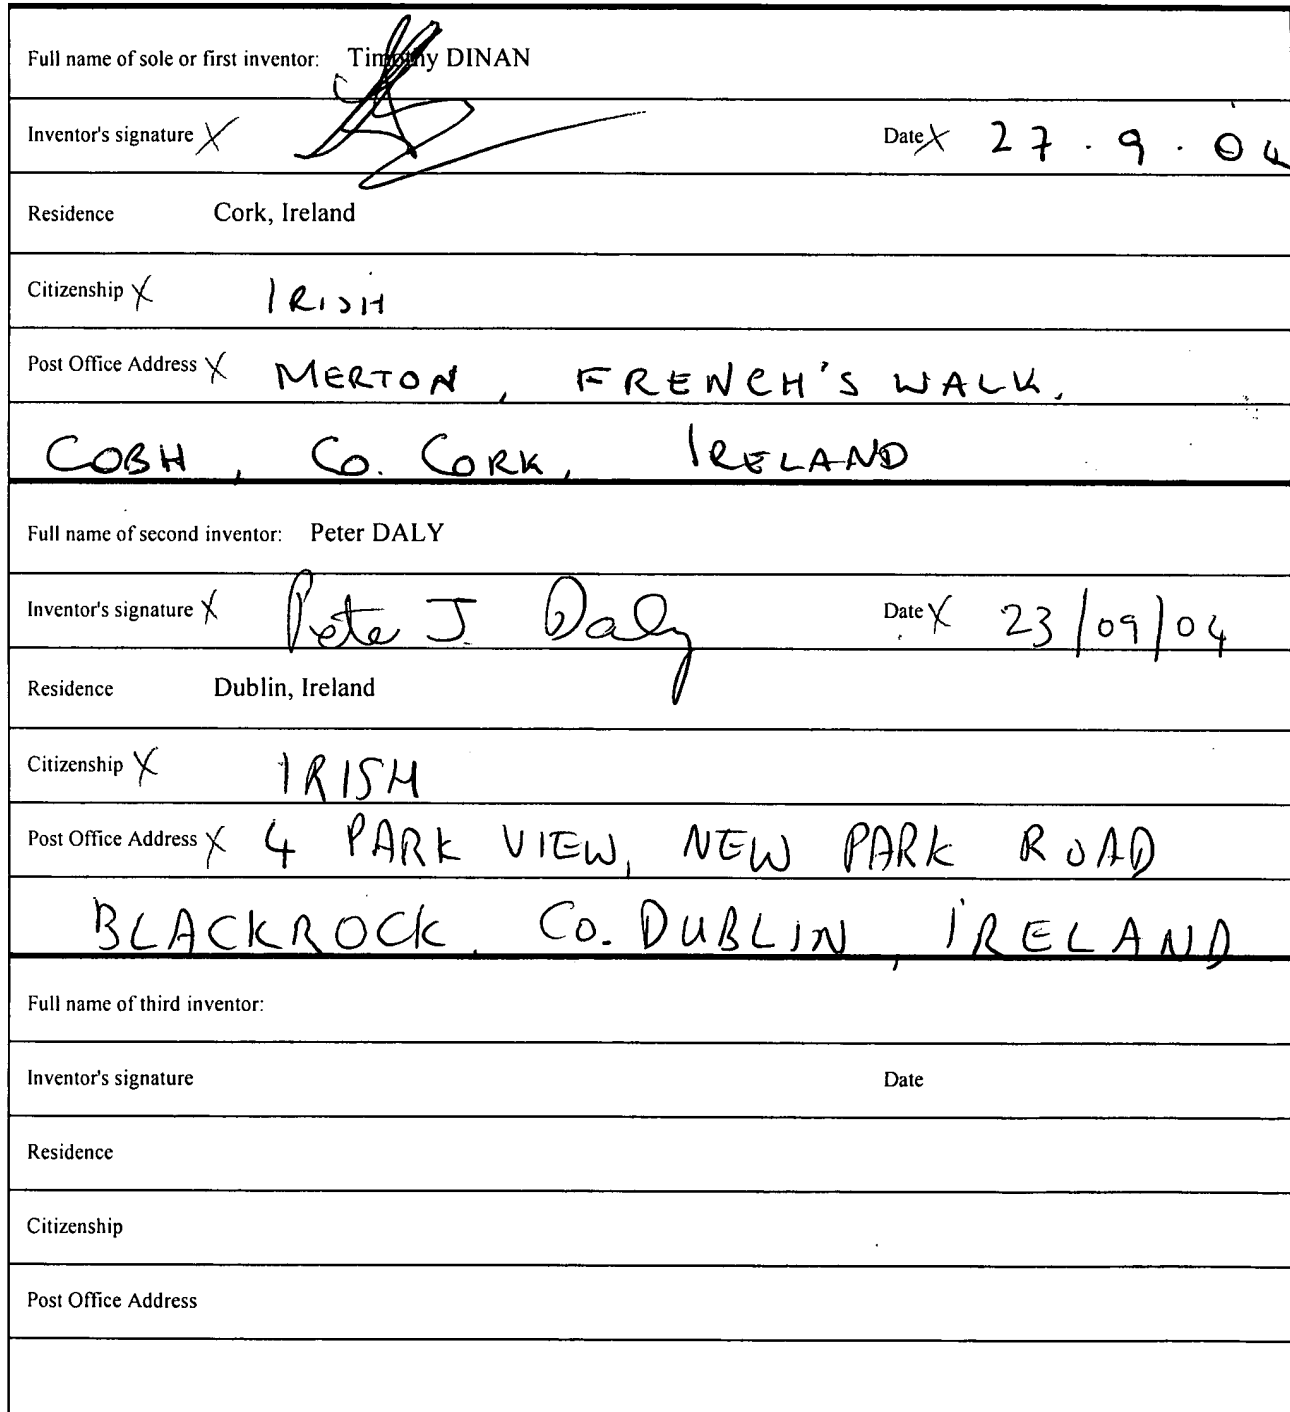 Full name of sole or first inventor: Timothy DINAN
Inventor's signature X Date X 27.9.04
Residence Cork, Ireland
Citizenship X IRISH
Post Office Address X MERTON, FRENCH'S WALK,
COBH, Co. CORK, IRELAND
Full name of second inventor: Peter DALY
Inventor's signature X Pete J. Daly Date X 23/09/04
Residence Dublin, Ireland
Citizenship X IRISH
Post Office Address X 4 PARK VIEW, NEW PARK ROAD
BLACKROCK, Co. DUBLIN, IRELAND
Full name of third inventor:
Inventor's signature Date
Residence
Citizenship
Post Office Address